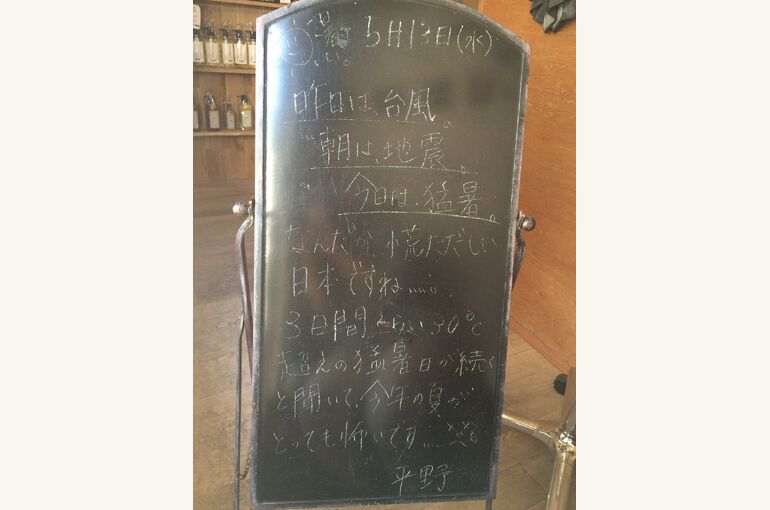 暑い。 5月13日(水)
昨日は、台風。
朝は、地震。
今日は、猛暑。
なんだか、慌ただしい
日本ですね.....。
3日間くらい30℃
超えの猛暑日が続く
と聞いて、今年の夏が
とっても怖いです.....
平野